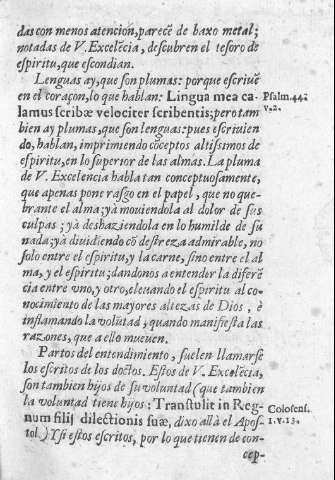 das con menos atencion, parecē de baxo metal;
notadas de V. Excelēcia, descubren el tesoro de
espiritu, que escondian.
Lenguas ay, que son plumas: porque escriuē
en el coraçon, lo que hablan: Lingua mea ca-
lamus scribæ velociter scribentis; pero tam
bien ay plumas, que son lenguas: pues escriuien
do, hablan, imprimiendo cōceptos altissimos de
espiritu, en lo superior de las almas. La pluma
de V. Excelencia habla tan conceptuosamente,
que apenas pone rasgo en el papel, que no que-
brante el alma; yà mouiendola al dolor de sus
culpas; yà deshaziendola en lo humilde de su
nada; yà diuidiendo cō destreza admirable, no
solo entre el espiritu, y la carne, sino entre el al
ma, y el espiritu; dandonos a entender la diferē
cia entre vno, y otro, eleuando el espiritu al co-
nocimiento de las mayores altezas de Dios, è
inflamando la volūtad, quando manifiesta las
razones, que a ello mueuen.
Partos del entendimiento, suelen llamarse
los escritos de los doctos. Estos de V. Excelēcia,
son tambien hijos de su voluntad (que tambien
la voluntad tiene hijos: Transtulit in Reg-
num filij dilectionis suæ, dixo allà el Apos-
tol.) Y si estos escritos, por lo que tienen de con-
cep-
Psalm. 44.
v. 2.
Colosens.
1. v. 13.